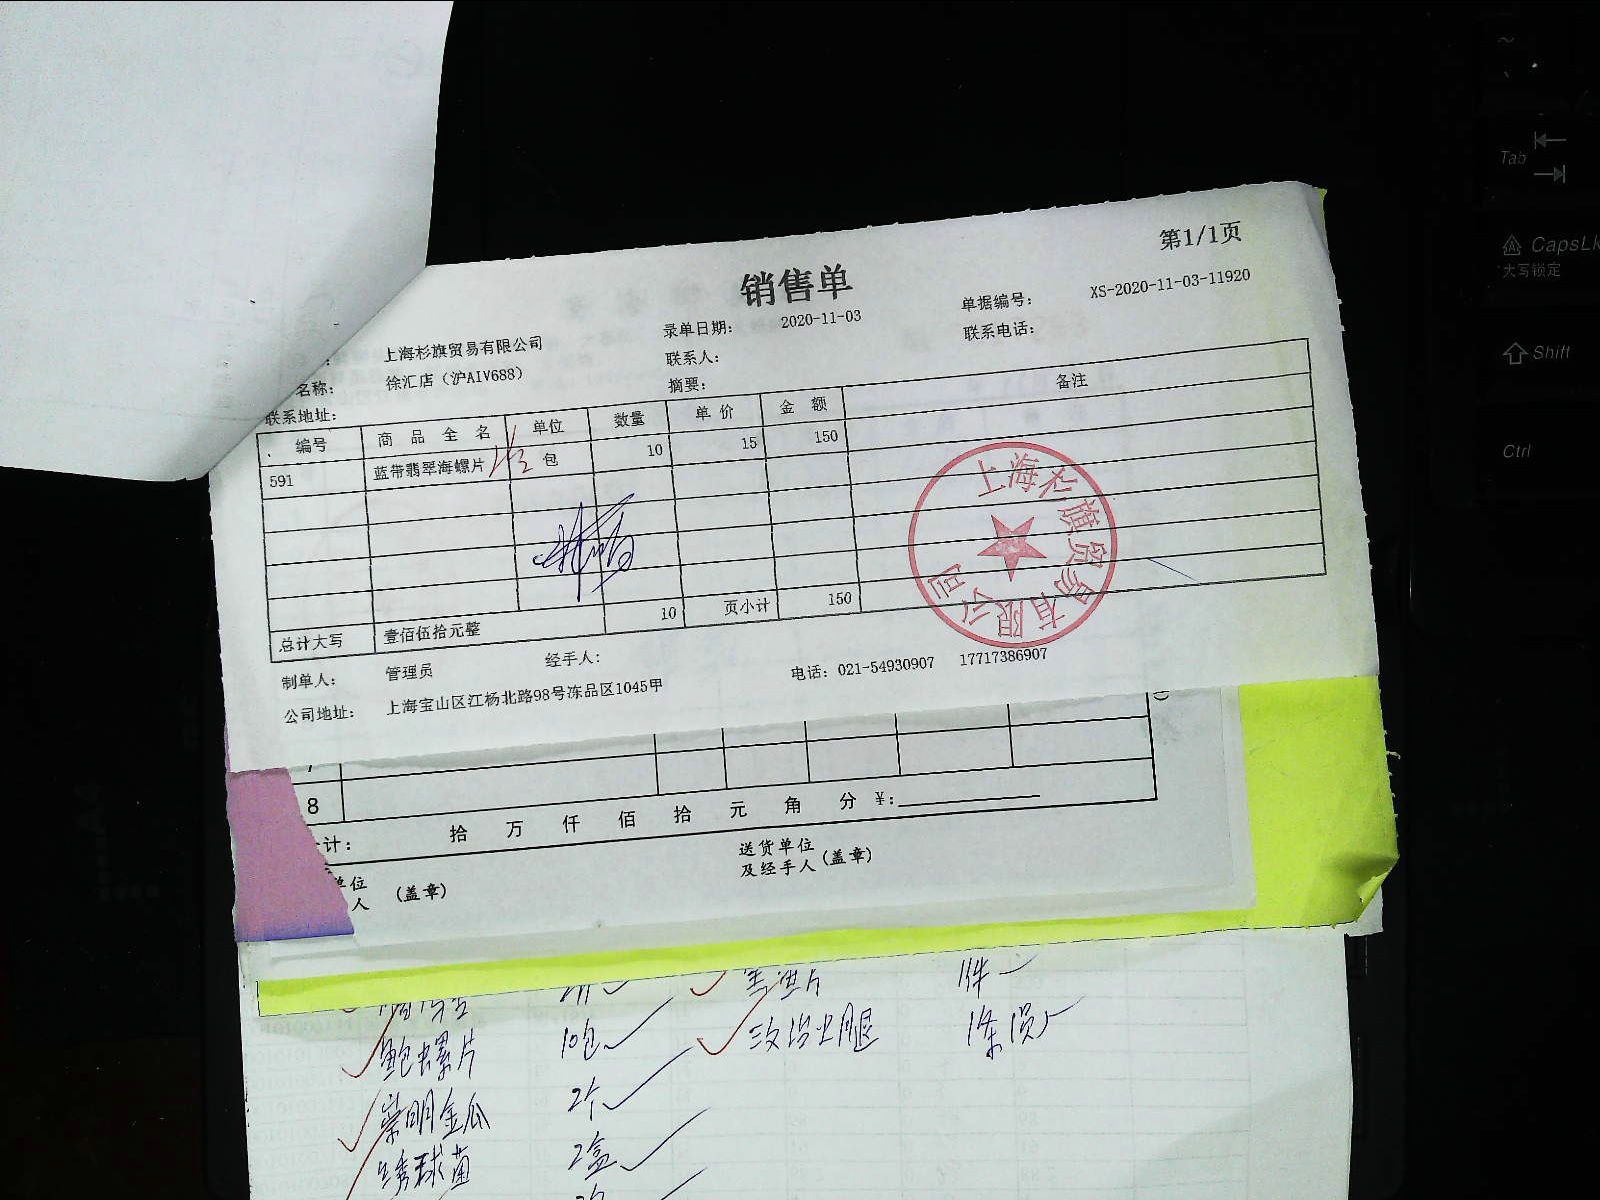 第1/1页
销售单
录单日期: 2020-11-03 单据编号: XS-2020-11-03-11920
上海杉旗贸易有限公司 联系人: 联系电话:
名称: 徐汇店（沪AIV688） 摘要:
联系地址:
编号 商品全名 单位 数量 单价 金额 备注
591 蓝带翡翠海螺片 包 10 15 150
总计大写 壹佰伍拾元整 10 页小计 150
制单人: 管理员 经手人: 电话: 021-54930907 17717386907
公司地址: 上海宝山区江杨北路98号冻品区1045甲
上海杉旗贸易有限公司
7
8
计: 拾 万 仟 佰 拾 元 角 分 ¥:
单位 (盖章) 送货单位
人 及经手人 (盖章)
1件
鲍螺片 10包
崇明金瓜 2个
绣球菌 2盒
Tab
CapsLk
大写锁定
Shift
Ctrl